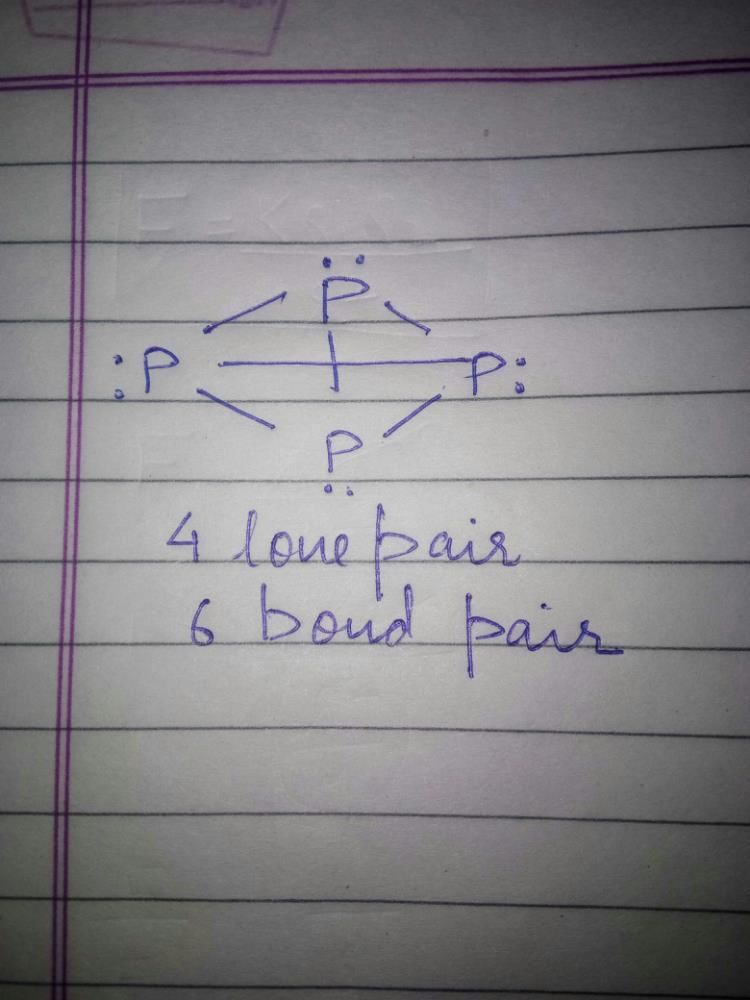 P
:P P:
P
4 lone pair
6 bond pair